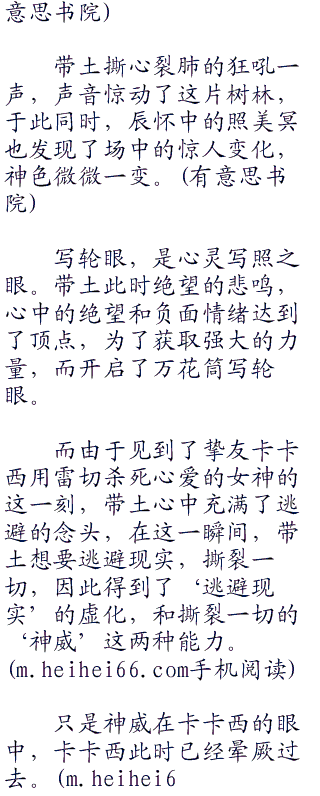 意思书院)
带土撕心裂肺的狂吼一
声，声音惊动了这片树林，
于此同时，辰怀中的照美冥
也发现了场中的惊人变化，
神色微微一变。(有意思书
院)
写轮眼，是心灵写照之
眼。带土此时绝望的悲鸣，
心中的绝望和负面情绪达到
了顶点，为了获取强大的力
量，而开启了万花筒写轮
眼。
而由于见到了挚友卡卡
西用雷切杀死心爱的女神的
这一刻，带土心中充满了逃
避的念头，在这一瞬间，带
土想要逃避现实，撕裂一
切，因此得到了‘逃避现
实’的虚化，和撕裂一切的
‘神威’这两种能力。
(m.heihei66.com手机阅读)
只是神威在卡卡西的眼
中，卡卡西此时已经晕厥过
去。(m.heihei6